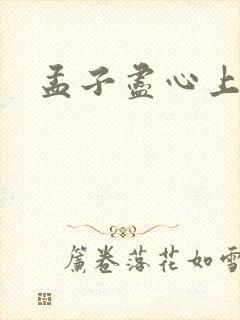 孟子盡心上
簾卷落花如雪